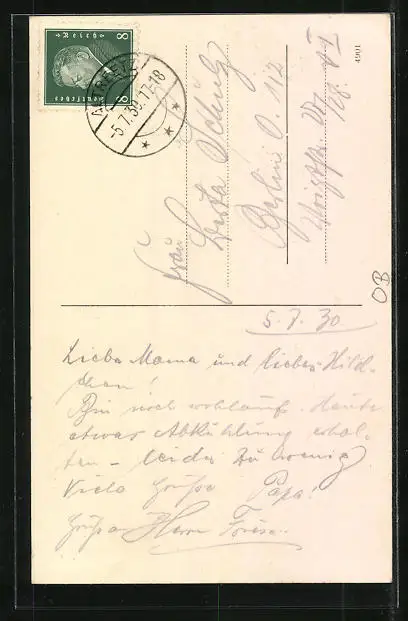 8 Deutsches Reich 8
-5.7.30.17-18
4901
Frau
Schulz
Berlin O. 112
OB
5.7.30
Liebe Mama und liebes Hild-
chen!
Bin noch wohlauf. Heute
etwas Abkühlung erhal-
ten - leider zu wenig
Viele Grüße Papa!
Grüße Herrn